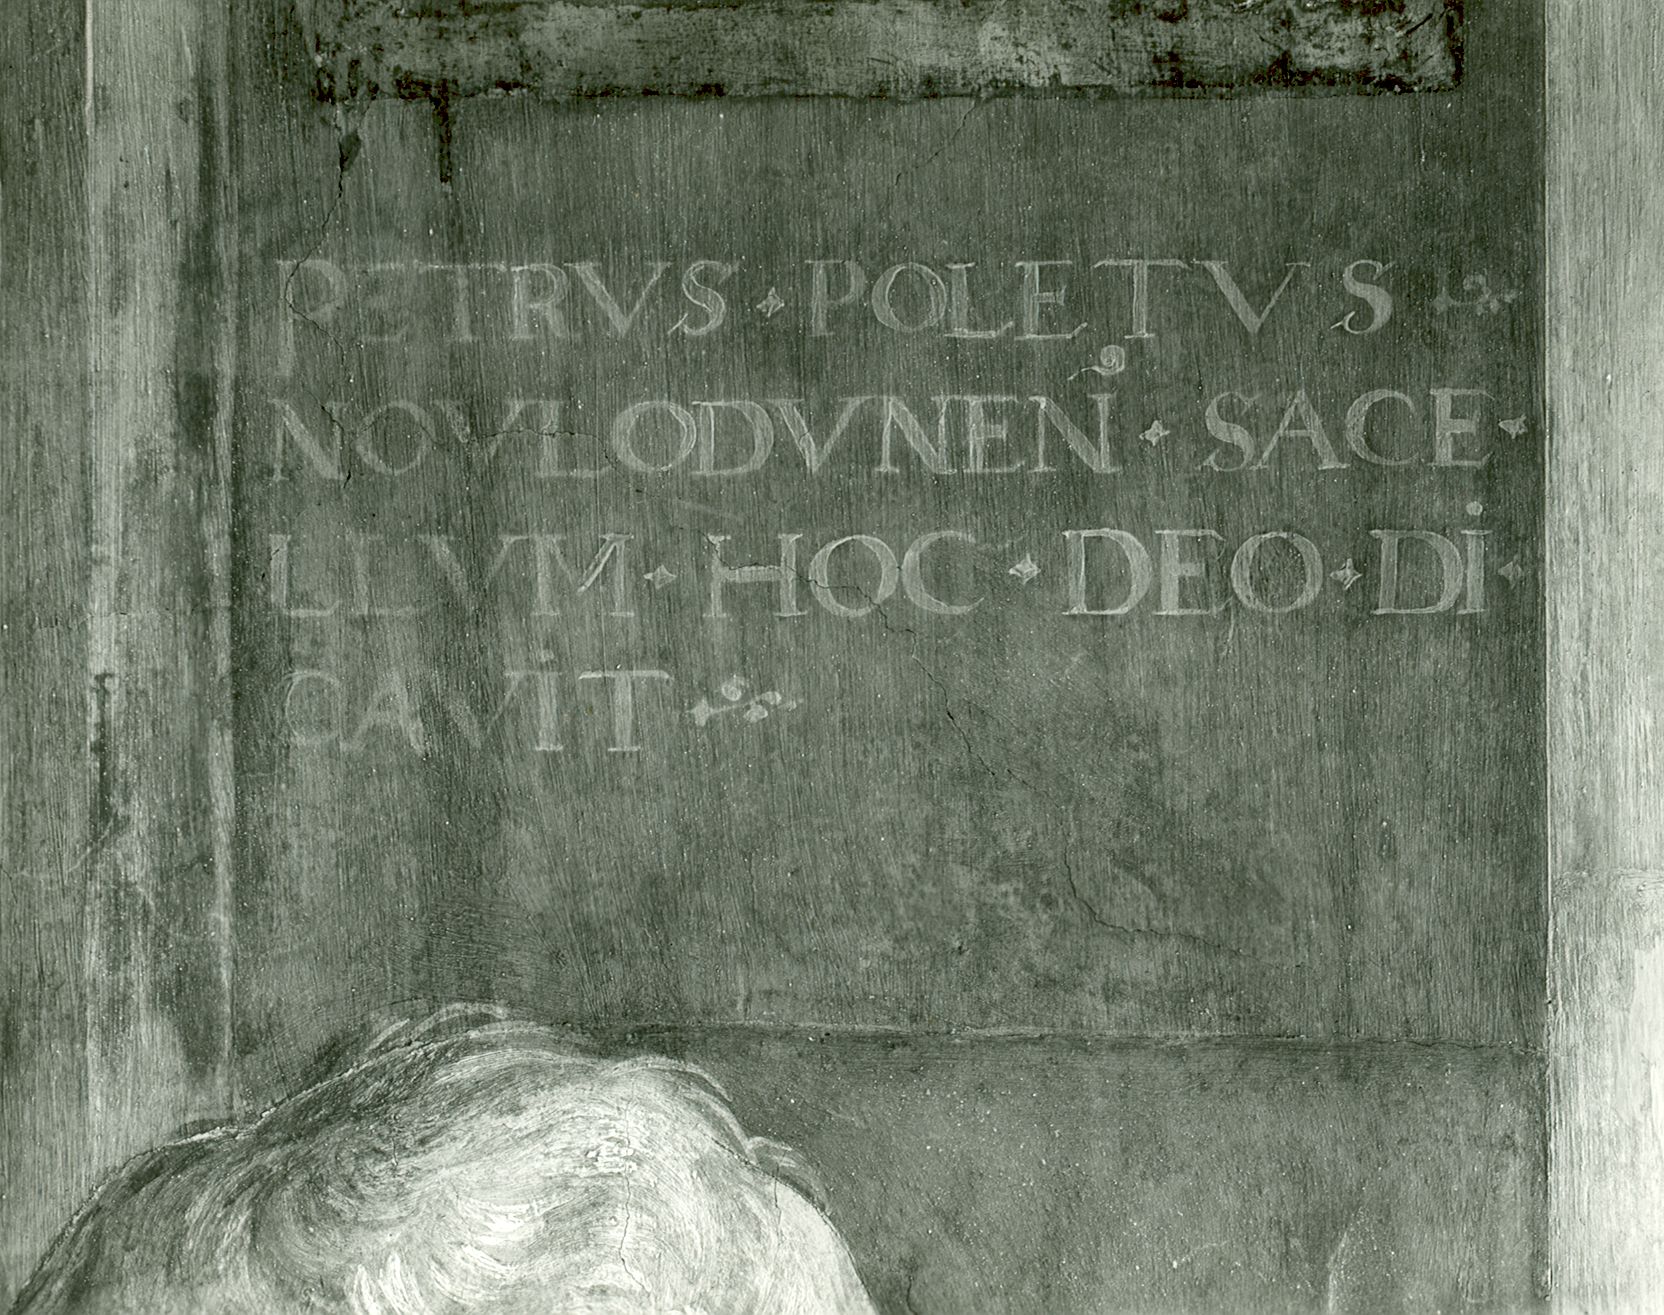 PETRVS · POLETVS
NOVLODVNEN̉ · SACE ·
LLVM · HOC · DEO · DI ·
CAViT